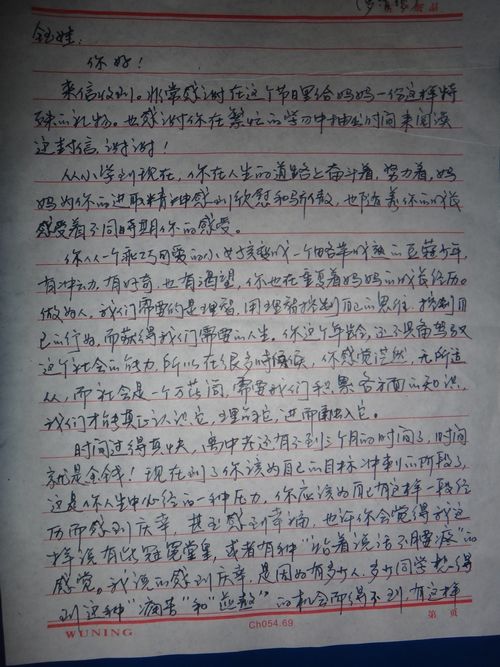 钰娃:
你好!
来信收到。非常感谢在这个节日里给妈妈一份这样特
殊的礼物。也感谢你在繁忙的学习中抽出时间来阅读
这封信,谢谢!
从小学到现在,你在人生的道路上奋斗着,努力着,妈
妈为你的进取精神感到欣慰和骄傲,也随着你的成长
感受着不同时期你的感受。
你从一个乖巧可爱的小女孩变成一个略带成熟的豆蔻少年,
有冲动,有好奇,也有渴望,你也在重复着妈妈的成长经历。
做为人,我们需要的是理智,用理智控制自己的思维,控制自
己的行为,而获得我们需要的人生。你这个年龄,还不具备驾驭
这个社会的能力,所以在很多时候,你感觉茫然,无所适
从,而社会是一个万花筒,需要我们积累各方面的知识,
我们才能真正认识它,理解它,进而融入它。
时间过得真快,离中考还有不到三个月的时间了,时间
就是金钱!现在到了你该为自己的目标冲刺的阶段了,
这是你人生中必经的一种压力,你应该为自己有这样一段经
历而感到庆幸,甚至感到幸福,也许你会觉得我这
样说有些冠冕堂皇,或者有种“站着说话不腰疼”的
感觉。我说的感到庆幸,是因为有多少人,多少同学想得
到这种“痛苦”和“煎熬”的机会而得不到,有这样
WUNING
Ch054.69
第 页